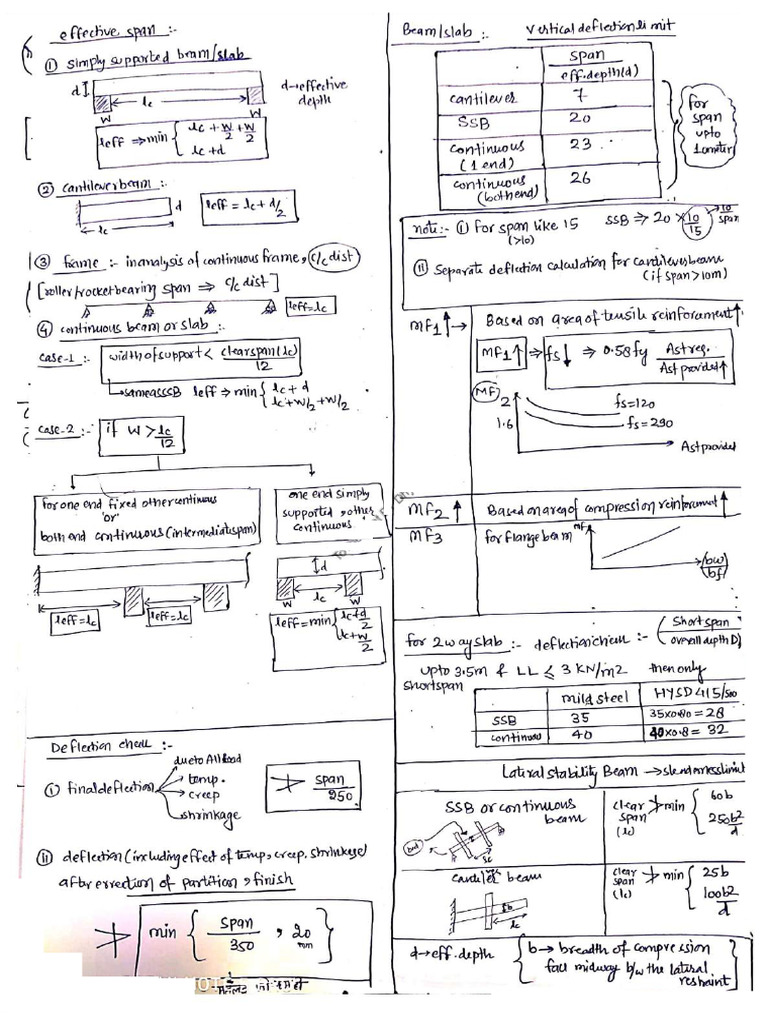 effective span :-
① simply supported beam/slab
d
lc
W
W
d→effective depth
leff ⇒ min { lc + W/2 + W/2
lc + d
② cantilever beam :-
d
lc
leff = lc + d/2
③ frame :- in analysis of continuous frame, c/c dist
[roller/rocket bearing span ⇒ c/c dist]
leff = lc
④ continuous beam or slab :-
case-1 :- width of support < clear span (lc)/12
→ same as SSB leff ⇒ min { lc + d
lc + W/2 + W/2
case-2 :- if W > lc/12
for one end fixed other continuous
'or'
both end continuous (intermediate span)
one end simply
supported, other
continuous
leff = lc
leff = lc
d
lc
W
W
leff = min { lc + d/2
lc + W/2
Deflection check :-
① final deflection
due to All load
temp.
creep
shrinkage
≯ span/250
② deflection (including effect of temp, creep, shrinkage)
after errection of partition, finish
≯ min { span/350 , 20 mm }
Beam/slab :- vertical deflection limit
span/eff. depth (d)
cantilever 7
SSB 20
continuous (1 end) 23
continuous (both end) 26
for
span
upto
10 meter
note :- ① for span like 15 (>10) SSB ⇒ 20 × 10/15 → 10/span
② Separate deflection calculation for cantilever beam
(if span > 10m)
MF1 ↑ → Based on area of tensile reinforcement ↑
MF1 ↑ ⇒ fs ↓ ⇒ 0.58 fy Ast req./Ast provided ↑
MF
2
1.6
fs = 120
fs = 290
Ast provided
MF2 ↑ Based on area of compression reinforcement ↑
MF3 for flange beam
MF
bw/bf
for 2 way slab :- deflection check :- (Short span/overall depth D)
upto 3.5m & LL ≤ 3 KN/m2 then only
short span
mild steel HYSD 415/500
SSB 35 35×0.80 = 28
continuous 40 40×0.8 = 32
Latral stability Beam → slenderness limit
SSB or continuous
beam
clear span (lc) ≯ min { 60b
250b2/d
cantilever beam
b
lc
clear span (lc) ≯ min { 25b
100b2/d
d → eff. depth
b → breadth of compression
face midway b/w the latral
restraint